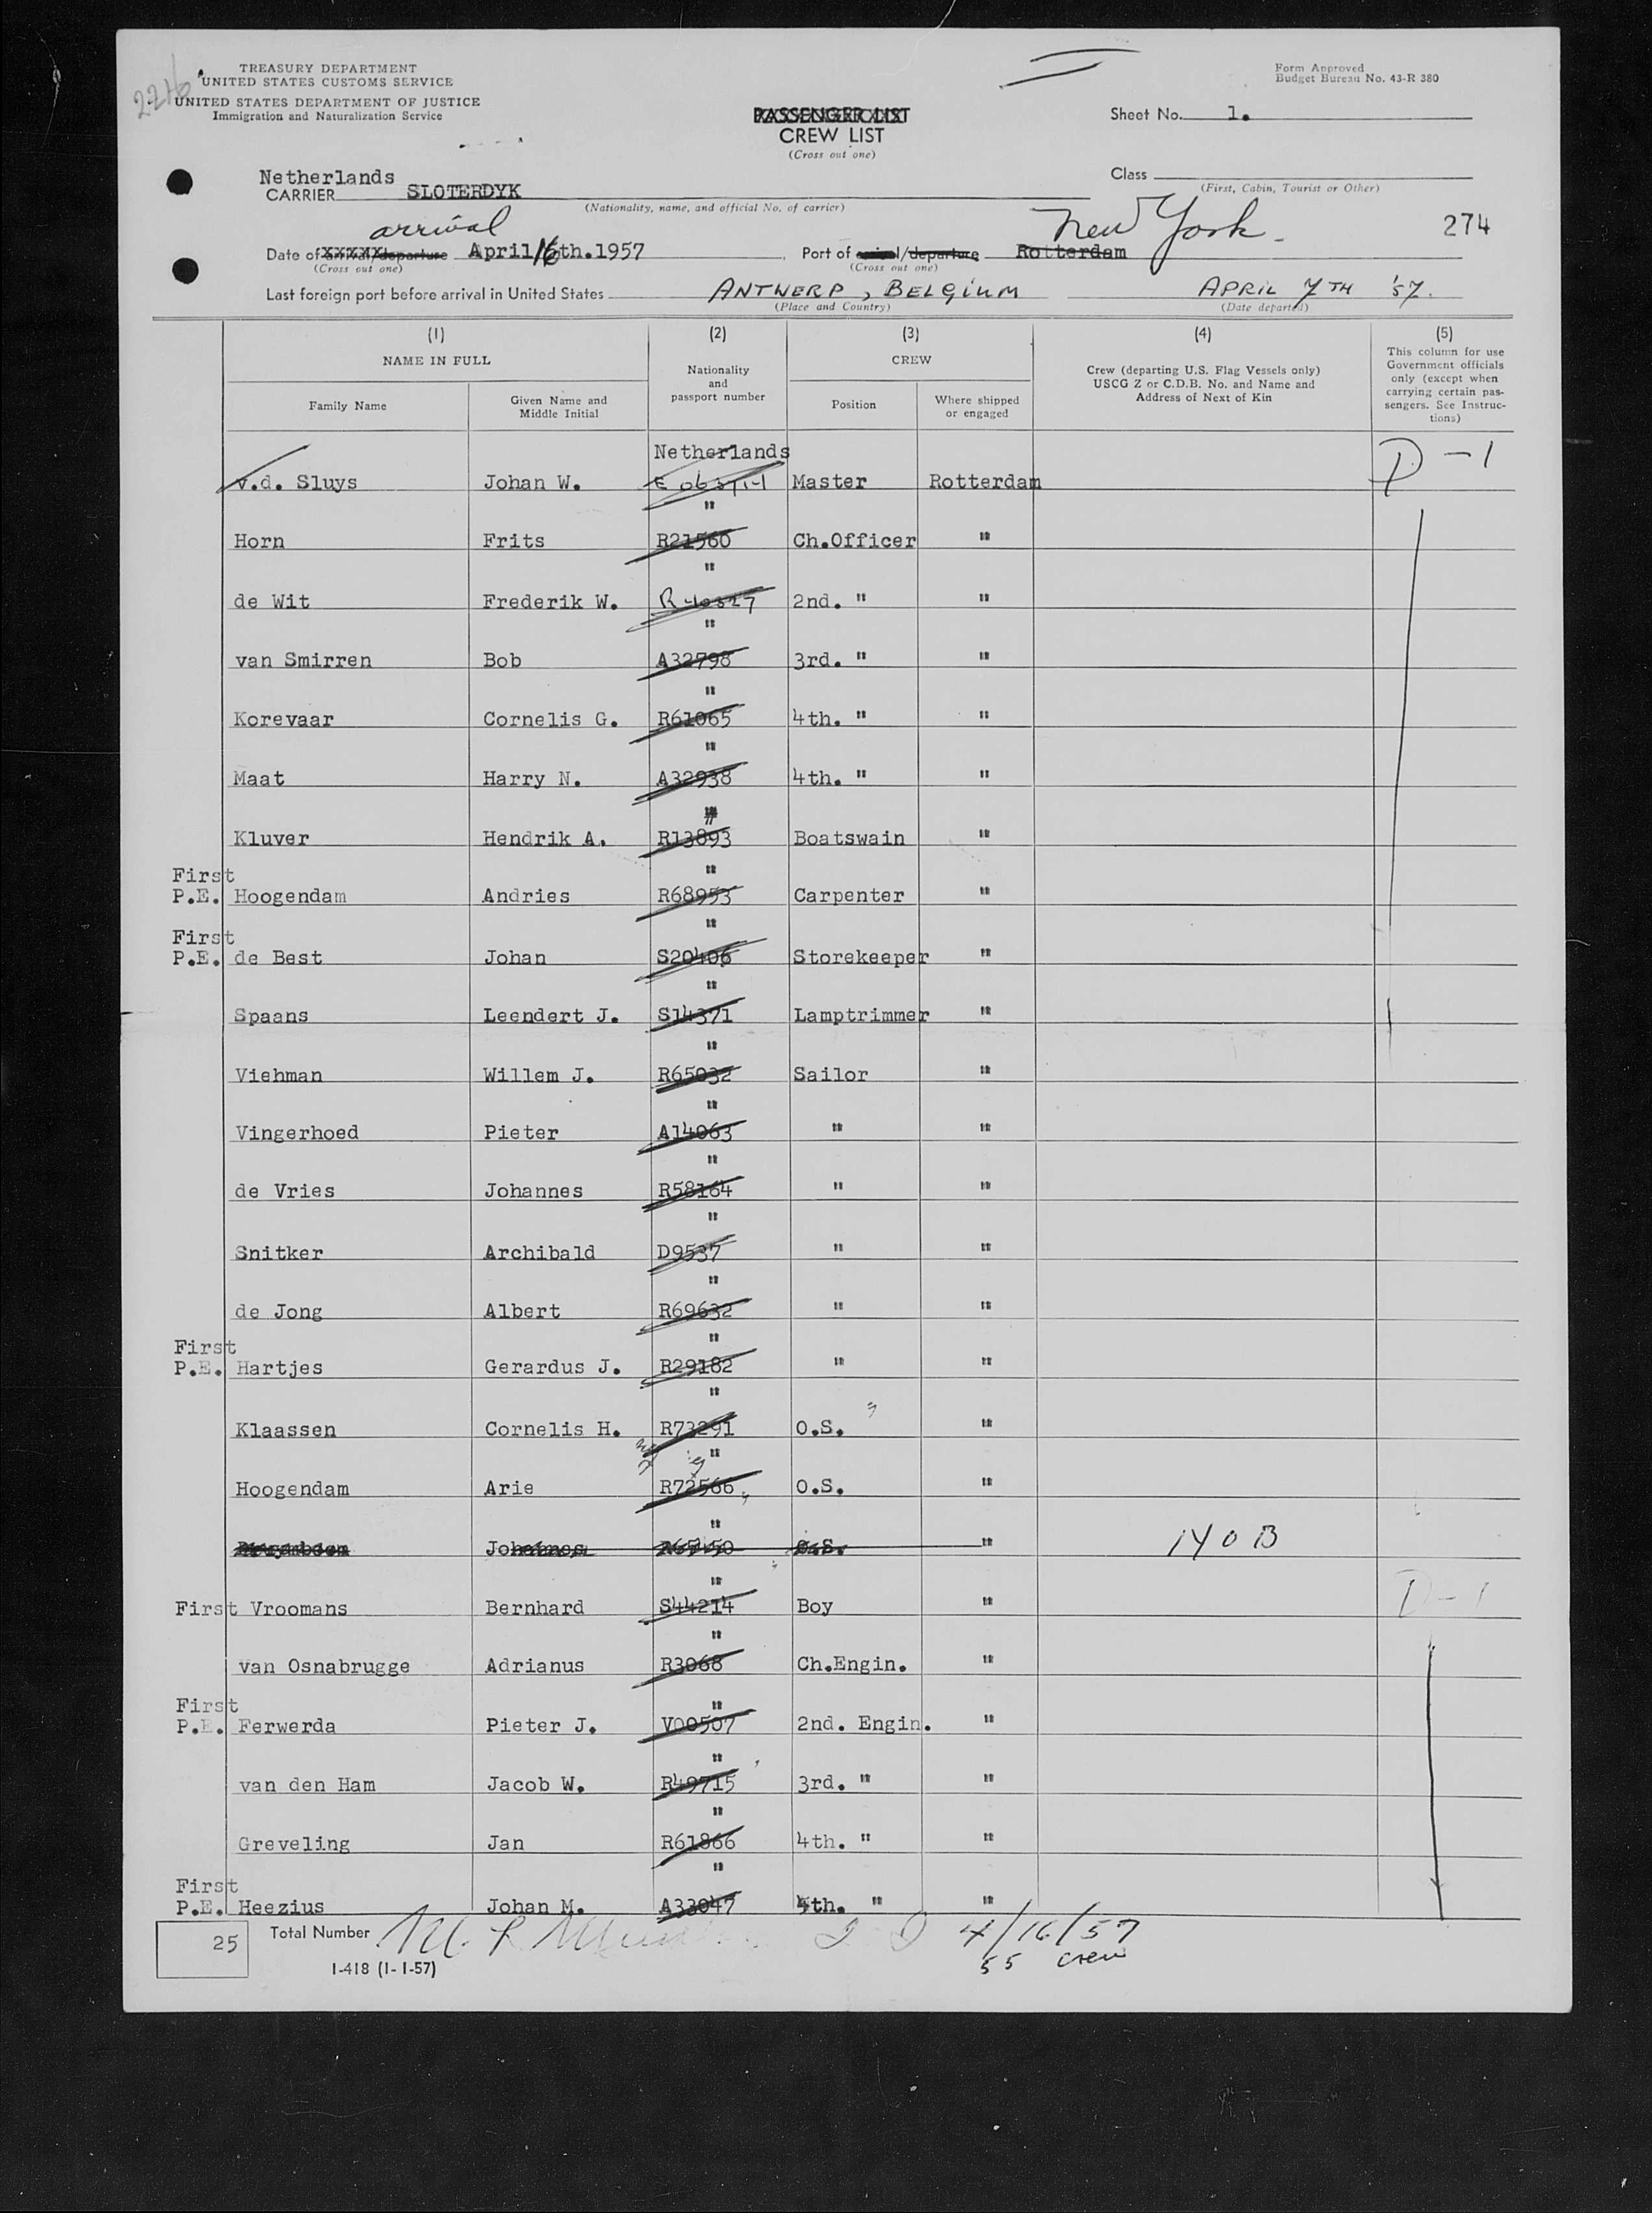 2216
TREASURY DEPARTMENT
UNITED STATES CUSTOMS SERVICE
UNITED STATES DEPARTMENT OF JUSTICE
Immigration and Naturalization Service
Form Approved
Budget Bureau No. 43-R 380
PASSENGER LIST
CREW LIST
(Cross out one)
Sheet No. 1.
Netherlands
CARRIER SLOTERDYK
(Nationality, name, and official No. of carrier)
Class
(First, Cabin, Tourist or Other)
arrival
New York
274
Date of arrival/departure April 16th.1957
(Cross out one)
Port of arrival/departure Rotterdam
(Cross out one)
Last foreign port before arrival in United States ANTWERP, BELGIUM APRIL 7TH '57.
(Place and Country) (Date departed)
(1) (2) (3) (4) (5)
NAME IN FULL
Family Name
Given Name and Middle Initial
Nationality and passport number
CREW
Position
Where shipped or engaged
Crew (departing U.S. Flag Vessels only)
USCG Z or C.D.B. No. and Name and
Address of Next of Kin
This column for use
Government officials
only (except when
carrying certain pas-
sengers. See Instruc-
tions)
Netherlands
v.d. Sluys Johan W. Master Rotterdam D-1
"
Horn Frits R21560 Ch.Officer "
"
de Wit Frederik W. 2nd. " "
"
van Smirren Bob A32798 3rd. " "
"
Korevaar Cornelis G. R61065 4th. " "
"
Maat Harry N. A32938 4th. " "
"
Kluver Hendrik A. R13893 Boatswain "
First "
P.E. Hoogendam Andries R68953 Carpenter "
First "
P.E. de Best Johan S20406 Storekeeper "
"
Spaans Leendert J. S14371 Lamptrimmer "
"
Viehman Willem J. R65032 Sailor "
"
Vingerhoed Pieter A14063 " "
"
de Vries Johannes R58164 " "
"
Snitker Archibald D9537 " "
"
de Jong Albert R69632 " "
First "
P.E. Hartjes Gerardus J. R29182 " "
"
Klaassen Cornelis H. R73291 O.S. "
"
Hoogendam Arie R72566 O.S. "
"
Johannes O.S. "
"
First Vroomans Bernhard S44214 Boy " D-1
"
van Osnabrugge Adrianus R3068 Ch.Engin. "
First "
P.E. Ferwerda Pieter J. V00507 2nd. Engin. "
"
van den Ham Jacob W. R49715 3rd. " "
"
Greveling Jan R61866 4th. " "
First "
P.E. Heezius Johan M. A33047 4th. " "
25 Total Number
4/16/57
55 crew
I-418 (1-1-57)